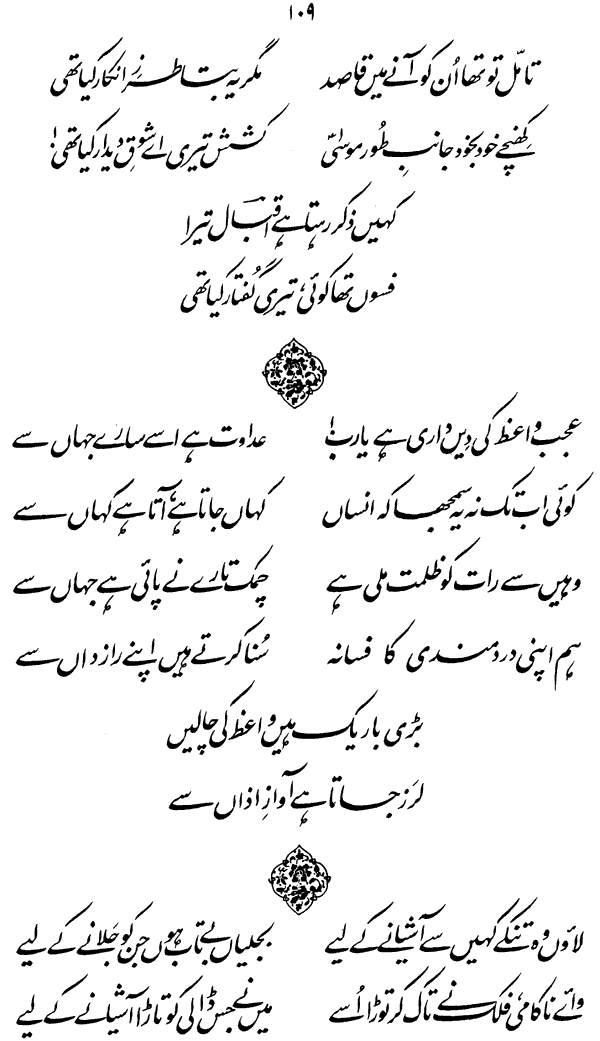 ۱۰۹
تامّل تو تھا اُن کو آنے میں قاصد مگر یہ بتا طرزِ انکار کیا تھی
کھنچے خود بخود جانبِ طُور موسیٰؑ کشش تیری اے شوقِ دیدار کیا تھی!
کہیں ذکر رہتا ہے اقبالؔ تیرا
فسوں تھا کوئی، تیری گُفتار کیا تھی
عجب واعظ کی دِیں‌داری ہے یا رب! عداوت ہے اسے سارے جہاں سے
کوئی اب تک نہ یہ سمجھا کہ انساں کہاں جاتا ہے، آتا ہے کہاں سے
وہیں سے رات کو ظُلمت ملی ہے چمک تارے نے پائی ہے جہاں سے
ہم اپنی دردمندی کا فسانہ سُنا کرتے ہیں اپنے رازداں سے
بڑی باریک ہیں واعظ کی چالیں
لرَز جاتا ہے آوازِ اذاں سے
لاؤں وہ تنکے کہیں سے آشیانے کے لیے بجلیاں بے تاب ہوں جن کو جَلانے کے لیے
وائے ناکامی، فلک نے تاک کر توڑا اُسے میں نے جس ڈالی کو تاڑا آشیانے کے لیے